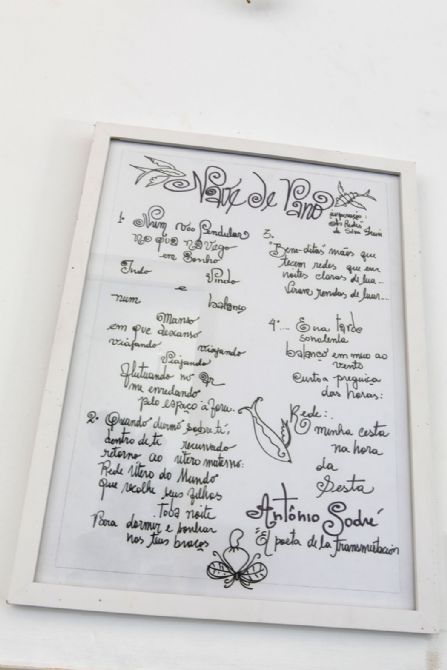 Nave de Pano
inspiração:
1- Num vôo Pendular
no qual navego
em Sonho
Indo Vindo
e
num balanço
Manso
em que descanso
viajando viajando
Viajando
flutuando no ar
me enredando
pelo espaço afora.
2- Quando durmo sobre ti,
dentro de ti recurvado
retorno ao útero materno:
Rede Útero do Mundo
que recolhe seus filhos
toda noite
Para dormir e sonhar
nos teus braços
3.
"Bene-ditas" mãos que
tecem redes que em
noites claras de lua...
Viram rondas de luar...
4ª... E na tarde
sonolenta
balanço em meio ao
vento
Curto a preguiça
das horas:
Rede:
minha cesta
na hora
da
Sesta
Antônio Sodré
"El poeta de la transmutación